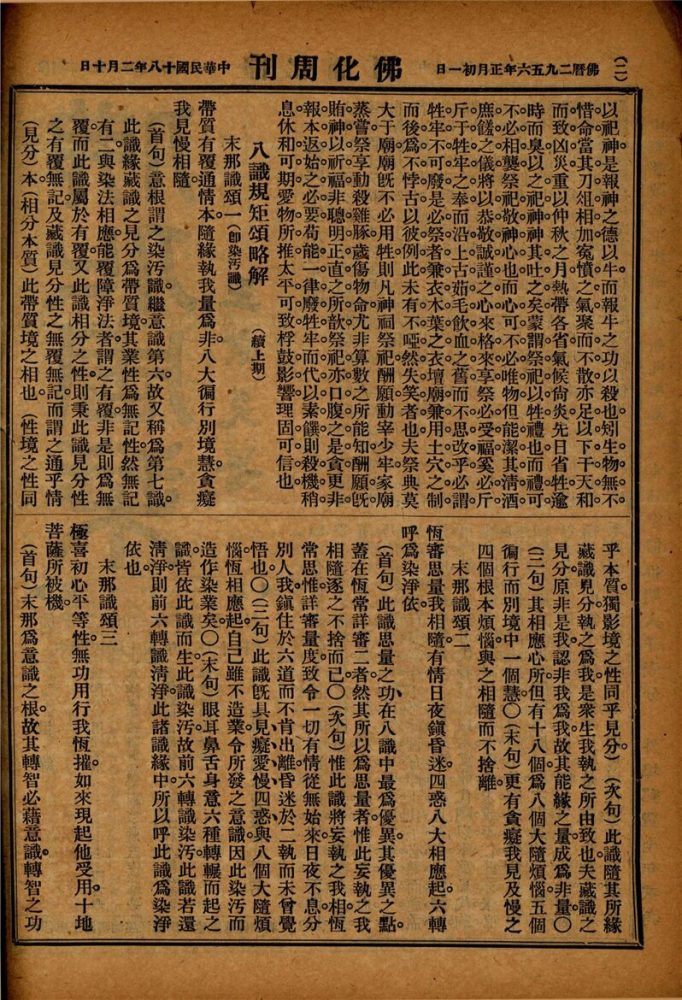 (二)
佛曆二九五六年正月初一日
佛化周刊
中華民國十八年二月十日
以祀神是報神之德以牛而報牛之功以殺也矧生物無不
惜命當其刀俎相加寃憤之氣聚而不散亦足以下干天和
而致凶災重以仲秋之月熱帶各省氣候尙炎先日省牲逾
時而臭以之祀神神其吐之矣蒙謂祭祀以牲禮也而禮可
不必相襲祭祀敬神心也而心可不必唯物但能潔其淸酒
庶饈之儀將以恭敬誠謹之心來格來享祭必受福奚必斤
斤于牲牢之奉而沿上古茹毛飲血之舊而不思改乎必謂
牲牢不可廢是必祭者兼衣木葉之衣壇廟兼用土穴之制
而後爲不悖古以彼例此未有不啞然失笑者也夫祭典莫
大于廟廟旣不必用牲則凡神祠祭祀酬願動宰少牢家廟
蒸嘗祭享動殺雞豚歲傷物命尤非算數之所能知酬願旣
賄神以祈福非聰明正直之所歆祭祀亦口腹之是貪更非
報本返始之必要苟能一律廢牲牢而代以素饌則殺機稍
息休和可期愛物所推太平可致桴鼓影響理固可信也
八識規矩頌略解
(續上期)
末那識頌一(卽染汚識)
帶質有覆通情本隨緣執我量爲非八大徧行別境慧貪癡
我見慢相隨
(首句)意根謂之染汚識繼意識第六故又稱爲第七識
此識緣藏識之見分爲帶質境其業性爲無記性然無記
有二與染法相應能覆障淨法者謂之有覆非是則爲無
覆而此識屬於有覆又此識相分之性則秉此識見分性
之有覆無記及藏識見分性之無覆無記而謂之通乎情
(見分)本(相分本質)此帶質境之相也(性境之性同
乎本質獨影境之性同乎見分)(次句)此識隨其所緣
藏識見分執之爲我是衆生我執之所由致也夫藏識之
見分原非是我認非我爲我故其能緣之量成爲非量〇
(三句)其相應心所但有十八個爲八個大隨煩惱五個
徧行而別境中一個慧〇(末句)更有貪癡我見及慢之
四個根本煩惱與之相隨而不捨離
末那識頌二
恆審思量我相隨有情日夜鎭昏迷四惑八大相應起六轉
呼爲染淨依
(首句)此識思量之功在八識中最爲優異其優異之點
蓋在恆常詳審二者然其所以爲思量者惟此妄執之我
相隨逐之不捨而已〇(次句)惟此識將妄執之我相恆
常思惟詳審量度致令一切有情從無始來日夜不息分
別人我鎭住於六道而不肯出離昏迷於二執而未曾覺
悟也〇(三句)此識旣具見癡愛慢四惑與八個大隨煩
惱恆相應起自己雖不造業令所發之意識因此染汚而
造作染業矣〇(末句)眼耳鼻舌身意六種轉輾而起之
識皆依此識而生此識染汚故前六轉識染汚此識若還
淸淨則前六轉識淸淨此諸識緣中所以呼此識爲染淨
依也
末那識頌三
極喜初心平等性無功用行我恆摧如來現起他受用十地
菩薩所被機
(首句)末那爲意識之根故其轉智必藉意識轉智之功